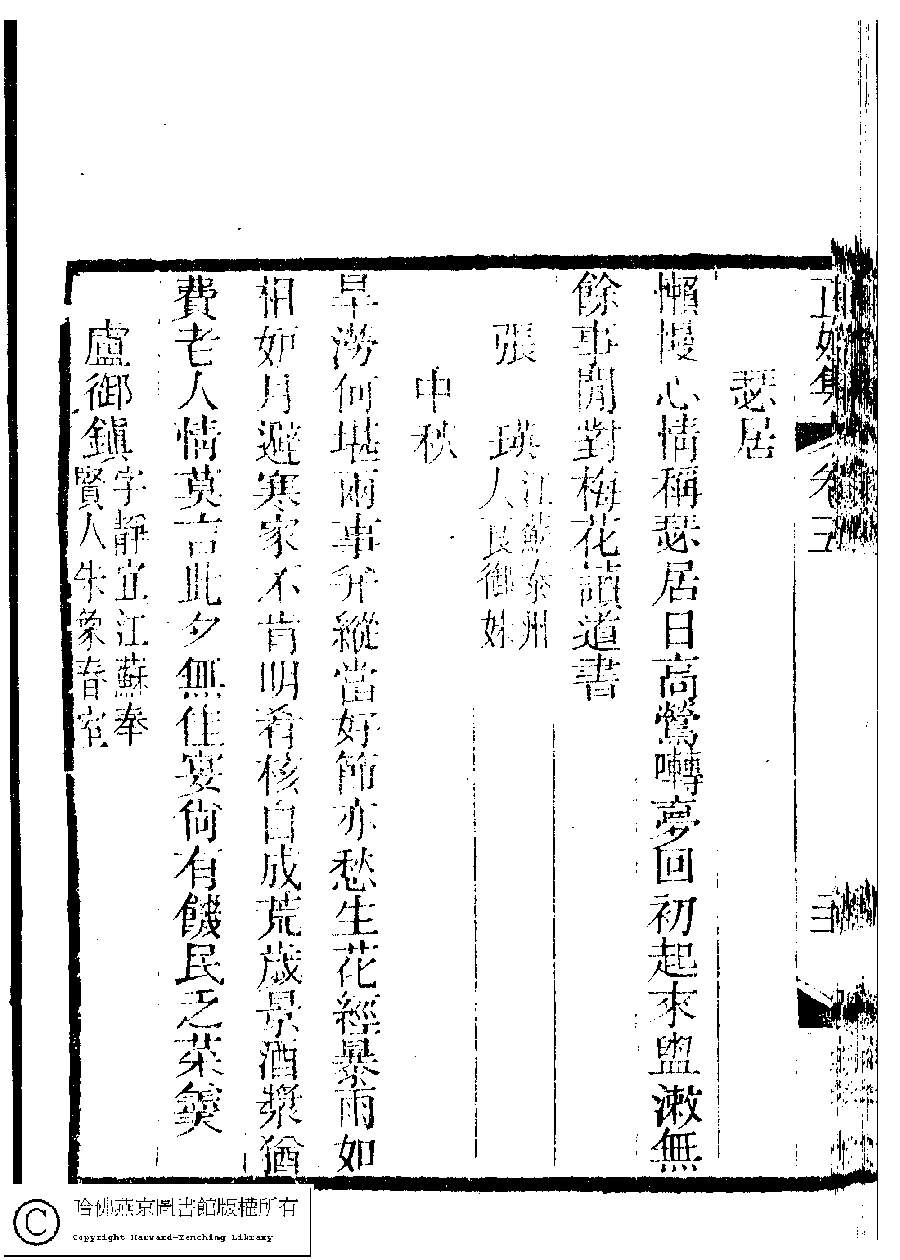 正始集 卷三 三
瑟居
懶慢心情稱瑟居日高鶯囀夢回初起來盥漱無
餘事閒對梅花讀道書
張 瑛江蘇泰州人良御妹
中秋
旱澇何堪兩事并縱當好節亦愁生花經暴雨如
相妒月避寒家不肯明肴核自成荒歲景酒漿猶
費老人情莫言此夕無佳宴尙有饑民乏菜羹
盧御鎭字靜宜江蘇奉賢人朱象春室
哈佛燕京圖書館版權所有
Copyright Harvard-Yenching Library